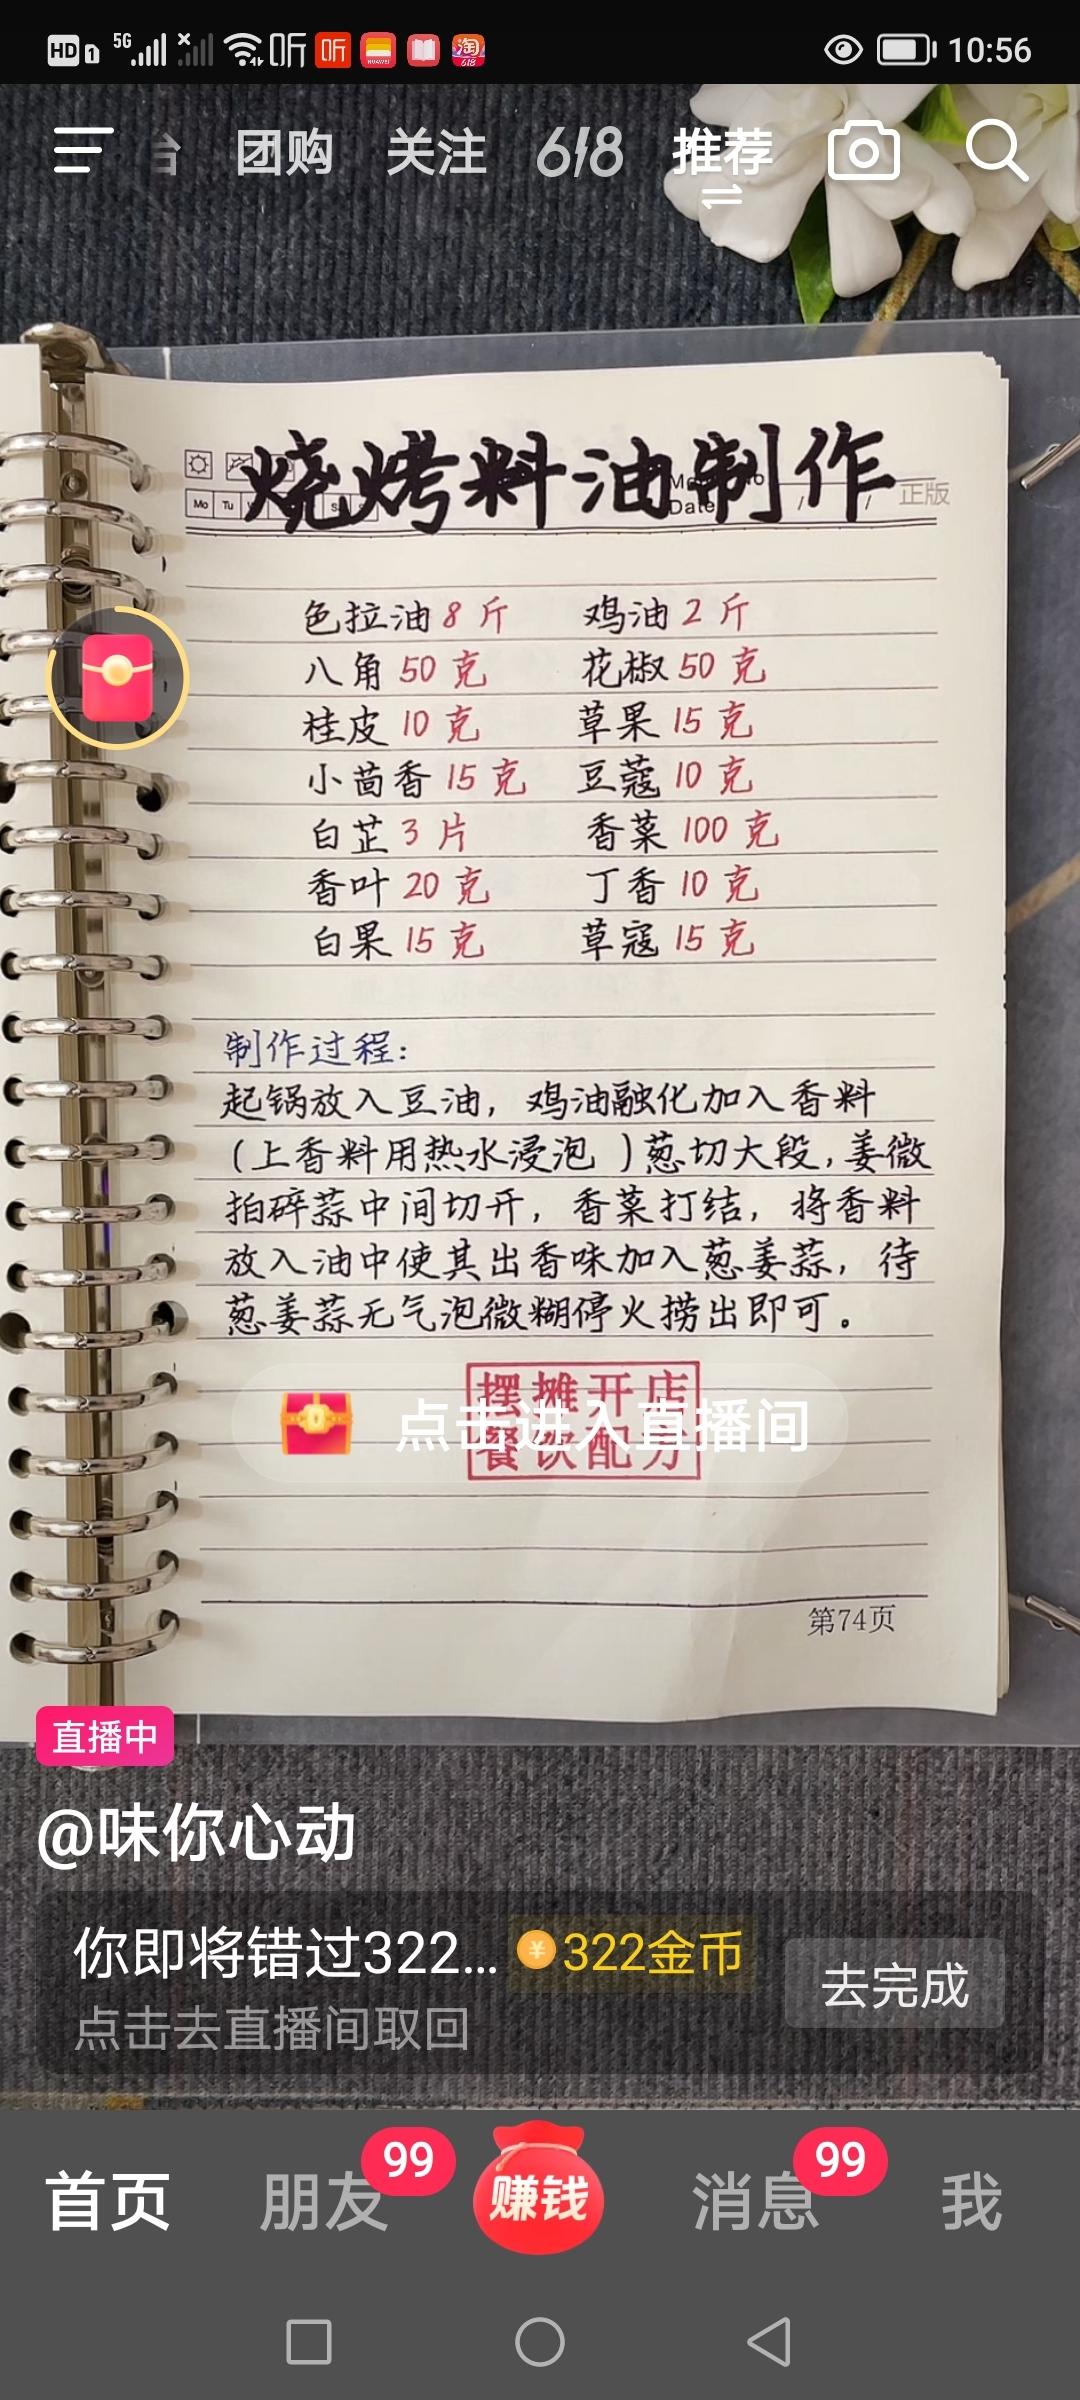 HD 1 5G 听 听 HUAWEI 淘 618 10:56
台 团购 关注 618 推荐
烧烤料油制作
Mo Tu
Date / /
正版
色拉油 8 斤 鸡油 2 斤
八角 50 克 花椒 50 克
桂皮 10 克 草果 15 克
小茴香 15 克 豆蔻 10 克
白芷 3 片 香菜 100 克
香叶 20 克 丁香 10 克
白果 15 克 草寇 15 克
制作过程:
起锅放入豆油, 鸡油融化加入香料
(上香料用热水浸泡 )葱切大段,姜微
拍碎蒜中间切开, 香菜打结, 将香料
放入油中使其出香味加入葱姜蒜, 待
葱姜蒜无气泡微糊停火捞出即可。
摆摊开店
餐饮配方
点击进入直播间
第74页
直播中
@味你心动
你即将错过322... 322金币
点击去直播间取回
去完成
首页 朋友 99 赚钱 消息 99 我